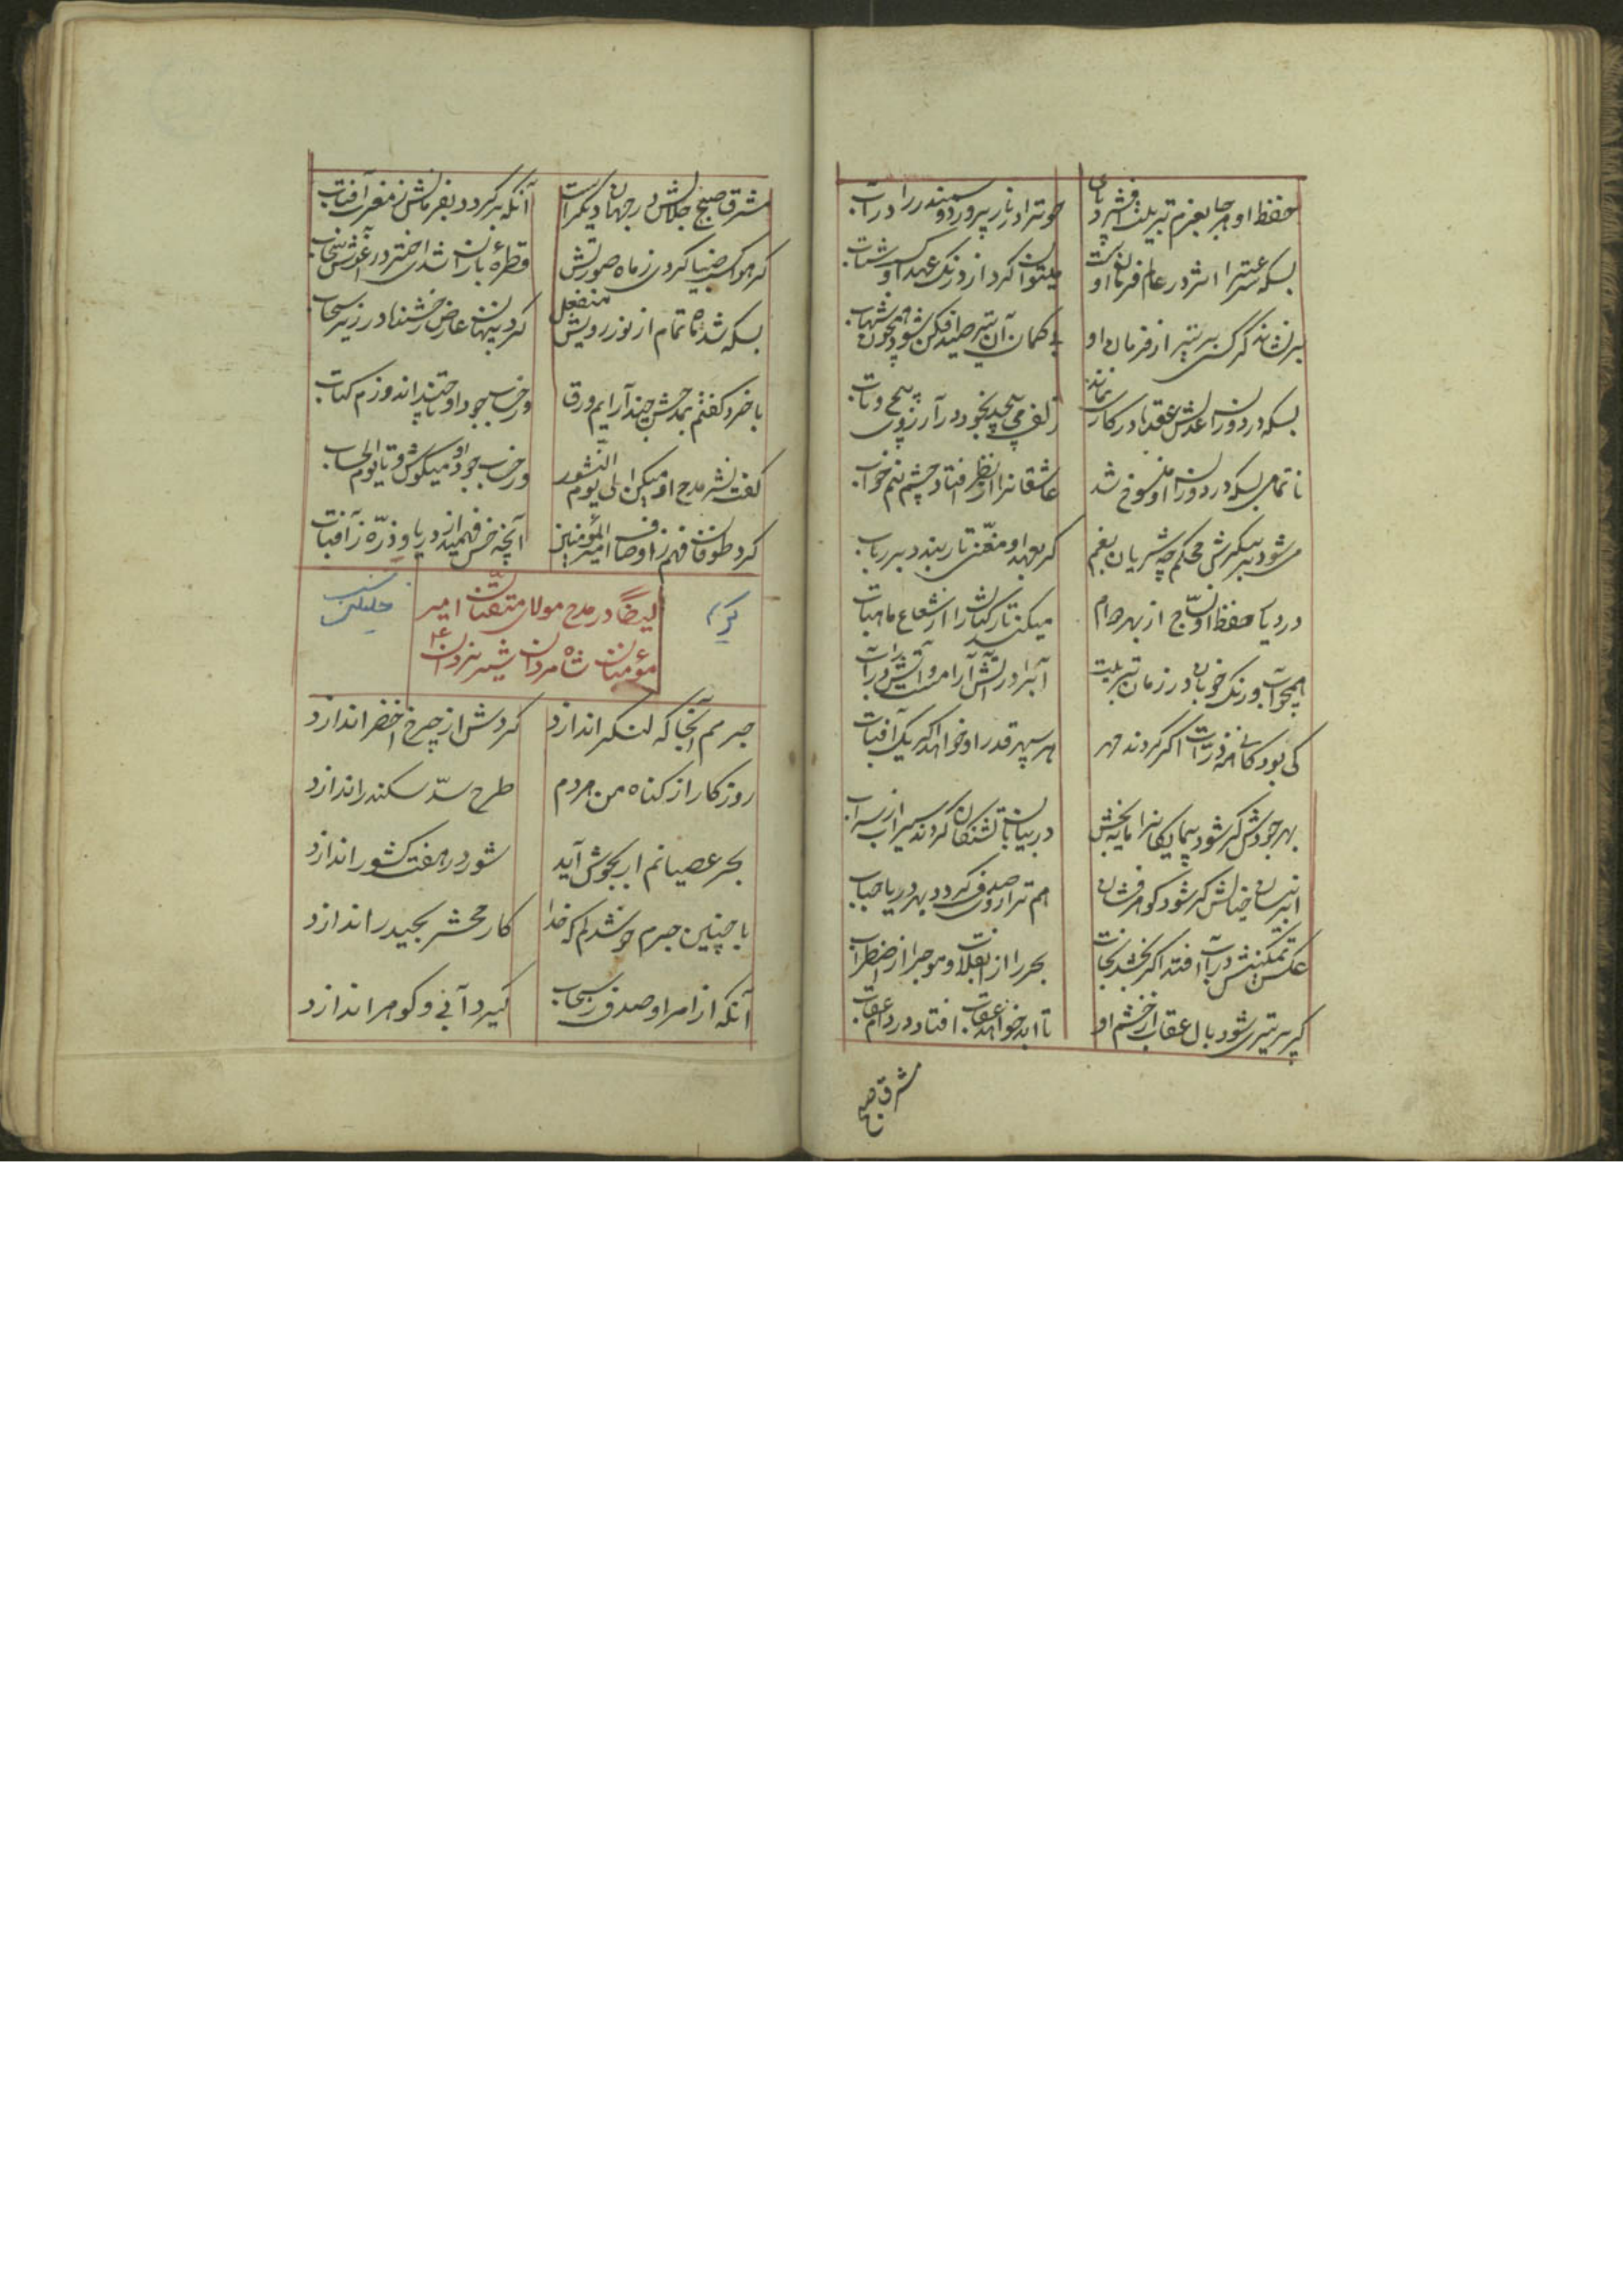 حفظ او هر جا بعزم تربیت فشرد پای
حوت را در نار پرورد و سمندر را در آب
بسکه سرعت را اثر در عام فرمان اوست
میتوان کرد از درنگ عهد او کسب شتاب
سر نشاند گر کسی سر تیر از فرمان او
بی کمان آن تیر صید افکن شود همچون شهاب
بسکه در دوران عدلش عقدها در کار نماند
زلف می پیچد بخود در آرزوی پیچ و تاب
ناتمامی بسکه در دوران او منسوخ شد
عاشقانرا از نظر افتاد چشم نیم خواب
می شود بر پیکرش محکم چه شریان بغم
گر بعهد او مغنی تار بندد بر رباب
در دیار حفظ او نساج از بهر دوام
میکند تار کتانش را از شعاع ماهتاب
همچو آب و رنگ خوبان در زمان تربیت
آبرا در آتش آرام است و آتش را در آب
کی بود کافی همه ذرات اگر گردند مهر
هر سپهر قدر او خواهد اگر یک آفتاب
بهر جودش گر شود پیمایکانرا مایه بخش
در بیابان تشنگان گردند سیراب از سراب
ابر نیسان خیالش گر شود گوهر فشان
هم ترازوی صدف گردد بهر دریا حباب
عکس تمکینش در آب افتد اگر بخشد نجات
بحر را از انقلاب و موج را از اضطراب
گر پر تیری شود بال عقاب از خشم او
تا ابد خواهد عقاب افتاد در دام عقاب
مشرق صبح
مشرق صبح جلالش در جهان دیگر است
آنکه برگردد بفرمانش ز مغرب آفتاب
گر هوا کسب ضیا کردی ز ماه صورتش
قطرهٔ باران شدی اختر در آغوش سحاب
بسکه شد ماه تمام از نور رویش منفعل
کرد پنهان عارض رخشنده در زیر سحاب
با خرد گفتم بمدحش چند آرایم ورق
ورحساب جود او تا چند اندوزم کتاب
گفت نشر مدح او میکن الی یوم النشور
ورحساب جود او میکوش تا یوم الحساب
کرد طوفان فهم ز اوصاف امیرالمؤمنین
آنچه خس فهمید از دریا و ذرّه ز آفتاب
ایضاً در مدح مولای متقیان امیر
مؤمنان شاه مردان شیر یزدان ع
جرمم آنجا که لنگر اندازد
گردش از چرخ اخضر اندازد
روزگار از گناه من مردم
طرح سدّ سکندر اندازد
بحر عصیانم ار بجوش آید
شور در هفت کشور اندازد
با چنین جرم خوشدلم که خدا
کار محشر بحیدر اندازد
آنکه از امر او صدف ز سحاب
گیرد آبی و گوهر اندازد